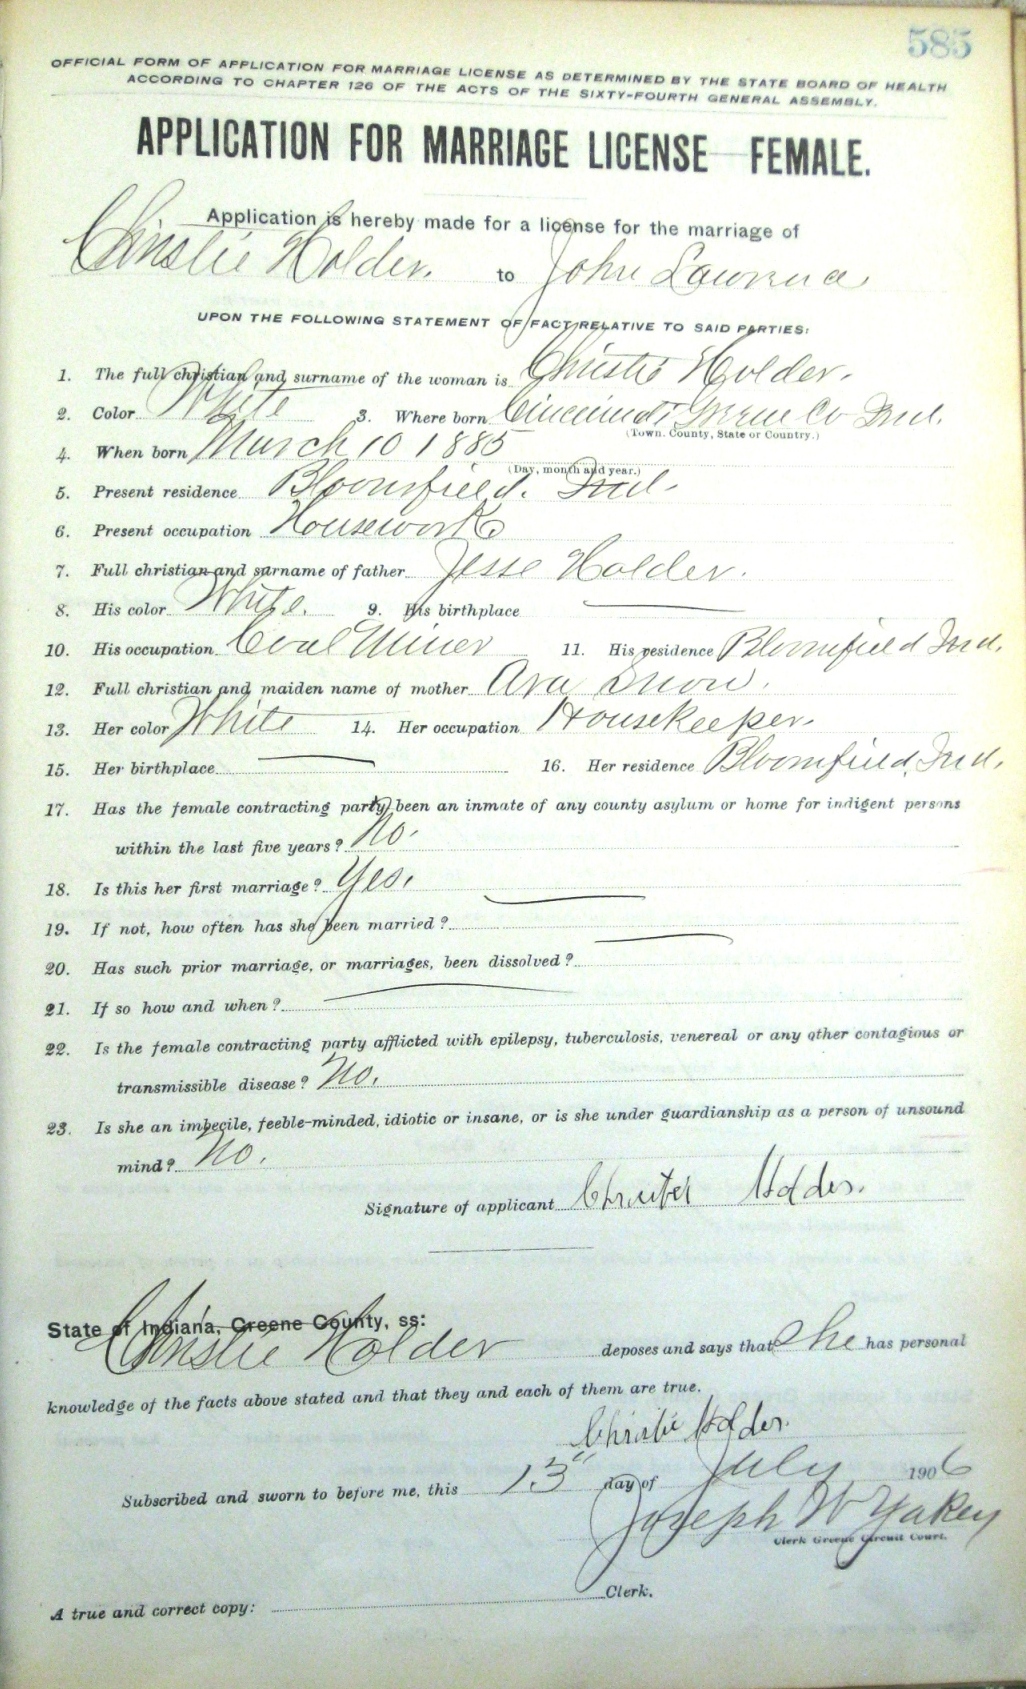 585
OFFICIAL FORM OF APPLICATION FOR MARRIAGE LICENSE AS DETERMINED BY THE STATE BOARD OF HEALTH
ACCORDING TO CHAPTER 126 OF THE ACTS OF THE SIXTY-FOURTH GENERAL ASSEMBLY.
APPLICATION FOR MARRIAGE LICENSE FEMALE.
Application is hereby made for a license for the marriage of
Christie Holder. to John Lawrence
UPON THE FOLLOWING STATEMENT OF FACT RELATIVE TO SAID PARTIES:
1. The full christian and surname of the woman is Christie Holder.
2. Color White 3. Where born Cincinnati Greene Co Ind.
(Town. County, State or Country.)
4. When born March 10 1885
(Day, month and year.)
5. Present residence Bloomfield. Ind.
6. Present occupation Housework
7. Full christian and surname of father Jesse Holder.
8. His color White. 9. His birthplace
10. His occupation Coal Miner 11. His residence Bloomfield Ind.
12. Full christian and maiden name of mother Ava Snow.
13. Her color White 14. Her occupation Housekeeper.
15. Her birthplace 16. Her residence Bloomfield, Ind.
17. Has the female contracting party been an inmate of any county asylum or home for indigent persons
within the last five years? No.
18. Is this her first marriage? Yes.
19. If not, how often has she been married?
20. Has such prior marriage, or marriages, been dissolved?
21. If so how and when?
22. Is the female contracting party afflicted with epilepsy, tuberculosis, venereal or any other contagious or
transmissible disease? No.
23. Is she an imbecile, feeble-minded, idiotic or insane, or is she under guardianship as a person of unsound
mind? No.
Signature of applicant Holder.
State of Indiana, Greene County, ss:
Christie Holder deposes and says that She has personal
knowledge of the facts above stated and that they and each of them are true.
Christie Holder.
Subscribed and sworn to before me, this 13" day of July 1906
Joseph W Yakey
Clerk Greene Circuit Court.
Clerk.
A true and correct copy: